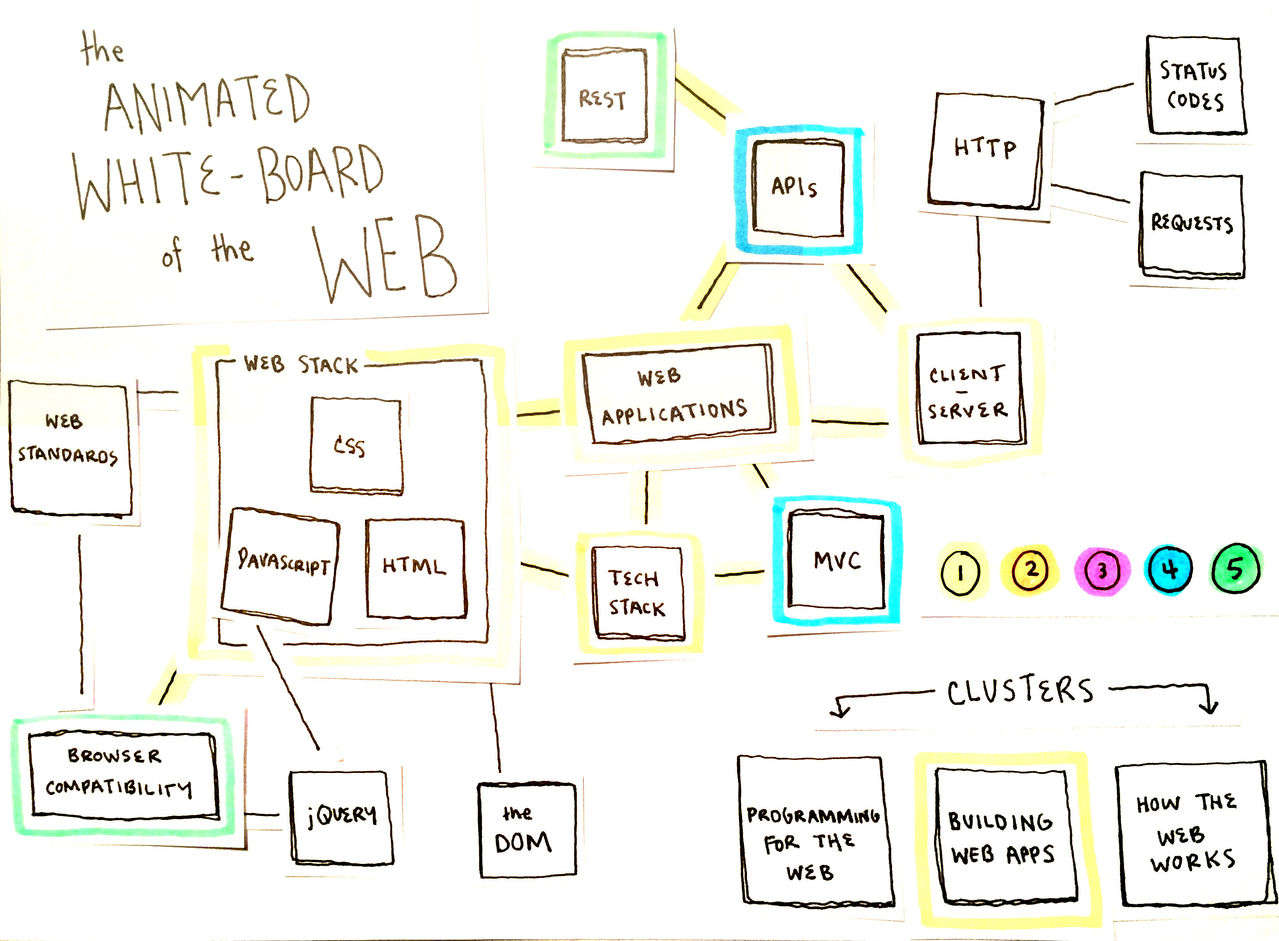 the
ANIMATED
WHITE-BOARD
of the WEB
REST
APIs
HTTP
STATUS
CODES
REQUESTS
WEB STACK
CSS
JAVASCRIPT
HTML
WEB
STANDARDS
WEB
APPLICATIONS
CLIENT
-
SERVER
TECH
STACK
MVC
1 2 3 4 5
BROWSER
COMPATIBILITY
jQUERY
the
DOM
CLUSTERS
PROGRAMMING
FOR THE
WEB
BUILDING
WEB APPS
HOW THE
WEB
WORKS